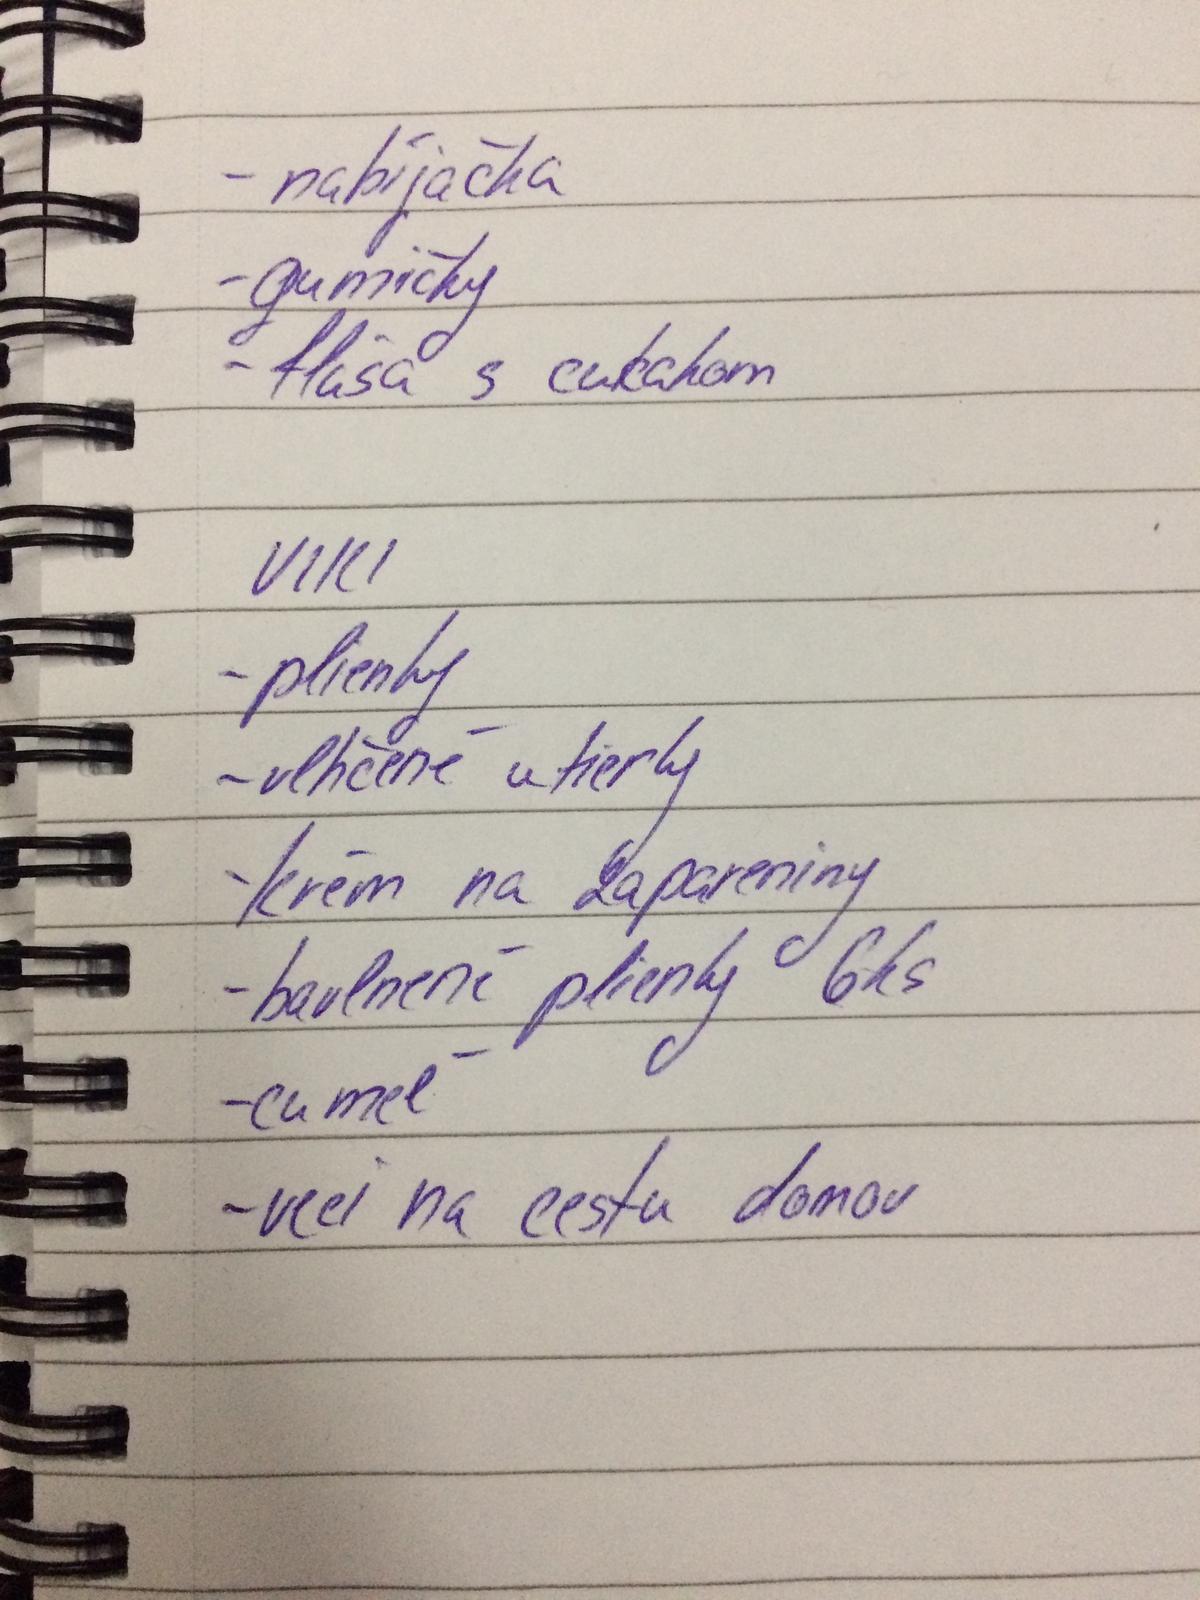 - nabíjačka
- gumičky
- fľaša s cukákom
VIKI
- plienky
- vlhčené utierky
- krém na zapareniny
- bavlnené plienky 6ks
- cumeľ
- veci na cestu domov